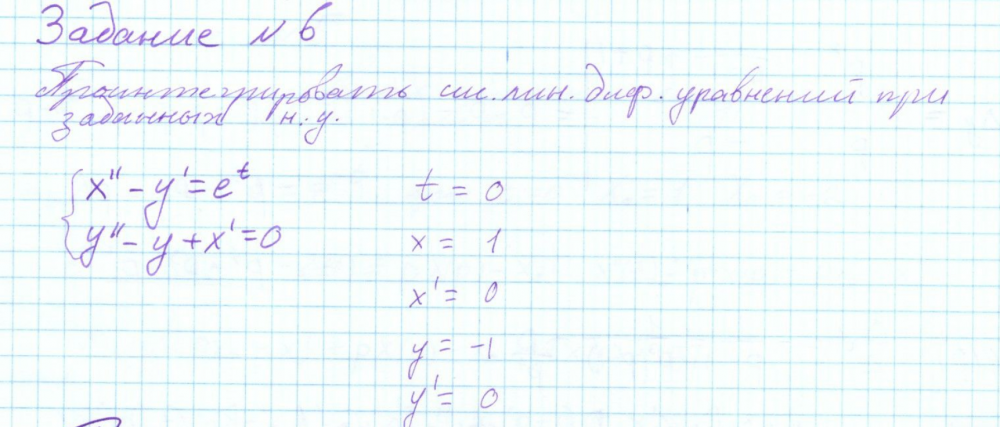 Задание №6
Проинтегрировать сис. лин. диф. уравнений при
заданных н.у.
x'' - y' = e^t t = 0
y'' - y + x' = 0 x = 1
x' = 0
y = -1
y' = 0